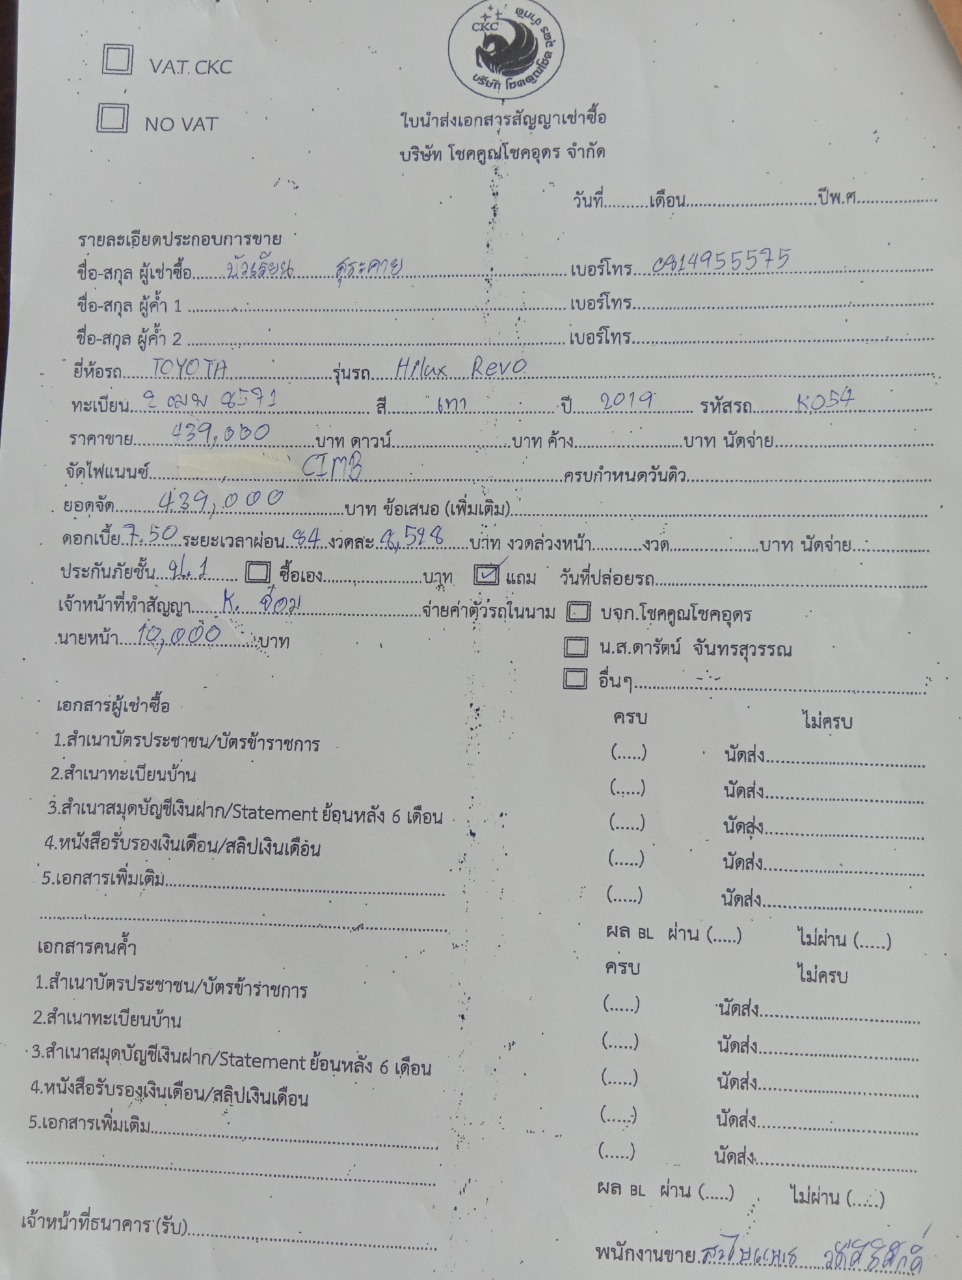 CKC
บริษัท โชคคูณโชคอุดร จำกัด
VAT. CKC
NO VAT
ใบนำส่งเอกสารสัญญาเช่าซื้อ
บริษัท โชคคูณโชคอุดร จำกัด
วันที่..........เดือน..............................ปีพ.ศ.................
รายละเอียดประกอบการขาย
ชื่อ-สกุล ผู้เช่าซื้อ บัวเลียน สุระคาย เบอร์โทร 0814955575
ชื่อ-สกุล ผู้ค้ำ 1 เบอร์โทร
ชื่อ-สกุล ผู้ค้ำ 2 เบอร์โทร
ยี่ห้อรถ TOYOTA รุ่นรถ Hilux Revo
ทะเบียน 2 ฒพ 8571 สี เทา ปี 2019 รหัสรถ K054
ราคาขาย 439,000 บาท ดาวน์ บาท ค้าง บาท นัดจ่าย
จัดไฟแนนซ์ CIMB ครบกำหนดวันดิว
ยอดจัด 439,000 บาท ข้อเสนอ (เพิ่มเติม)
ดอกเบี้ย 7.50 ระยะเวลาผ่อน 84 งวดละ 8,528 บาท งวดล่วงหน้า งวด บาท นัดจ่าย
ประกันภัยชั้น ป.1 ซื้อเอง บาท แถม วันที่ปล่อยรถ
เจ้าหน้าที่ทำสัญญา K. จ๋อม จ่ายค่าตัวรถในนาม บจก.โชคคูณโชคอุดร
นายหน้า 10,000 บาท น.ส.ดารัตน์ จันทรสุวรรณ
อื่นๆ
เอกสารผู้เช่าซื้อ ครบ ไม่ครบ
1.สำเนาบัตรประชาชน/บัตรข้าราชการ (.....) นัดส่ง
2.สำเนาทะเบียนบ้าน (.....) นัดส่ง
3.สำเนาสมุดบัญชีเงินฝาก/Statement ย้อนหลัง 6 เดือน (.....) นัดส่ง
4.หนังสือรับรองเงินเดือน/สลิปเงินเดือน (.....) นัดส่ง
5.เอกสารเพิ่มเติม (.....) นัดส่ง
ผล BL ผ่าน (.....) ไม่ผ่าน (.....)
เอกสารคนค้ำ ครบ ไม่ครบ
1.สำเนาบัตรประชาชน/บัตรข้าราชการ (.....) นัดส่ง
2.สำเนาทะเบียนบ้าน (.....) นัดส่ง
3.สำเนาสมุดบัญชีเงินฝาก/Statement ย้อนหลัง 6 เดือน (.....) นัดส่ง
4.หนังสือรับรองเงินเดือน/สลิปเงินเดือน (.....) นัดส่ง
5.เอกสารเพิ่มเติม (.....) นัดส่ง
ผล BL ผ่าน (.....) ไม่ผ่าน (.....)
เจ้าหน้าที่ธนาคาร (รับ)
พนักงานขาย